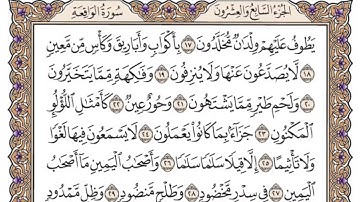 الجزء السابع والعشرون سورة الواقعة
يَطُوفُ عَلَيْهِمْ وِلْدَانٌ مُّخَلَّدُونَ ١٧ بِأَكْوَابٍ وَأَبَارِيقَ وَكَأْسٍ مِّن مَّعِينٍ
١٨ لَّا يُصَدَّعُونَ عَنْهَا وَلَا يُنزِفُونَ ١٩ وَفَاكِهَةٍ مِّمَّا يَتَخَيَّرُونَ
٢٠ وَلَحْمِ طَيْرٍ مِّمَّا يَشْتَهُونَ ٢١ وَحُورٌ عِينٌ ٢٢ كَأَمْثَالِ اللُّؤْلُؤِ
الْمَكْنُونِ ٢٣ جَزَاءً بِمَا كَانُوا يَعْمَلُونَ ٢٤ لَا يَسْمَعُونَ فِيهَا لَغْوًا
وَلَا تَأْثِيمًا ٢٥ إِلَّا قِيلًا سَلَامًا سَلَامًا ٢٦ وَأَصْحَابُ الْيَمِينِ مَا أَصْحَابُ
الْيَمِينِ ٢٧ فِي سِدْرٍ مَّخْضُودٍ ٢٨ وَطَلْحٍ مَّنضُودٍ ٢٩ وَظِلٍّ مَّمْدُودٍ